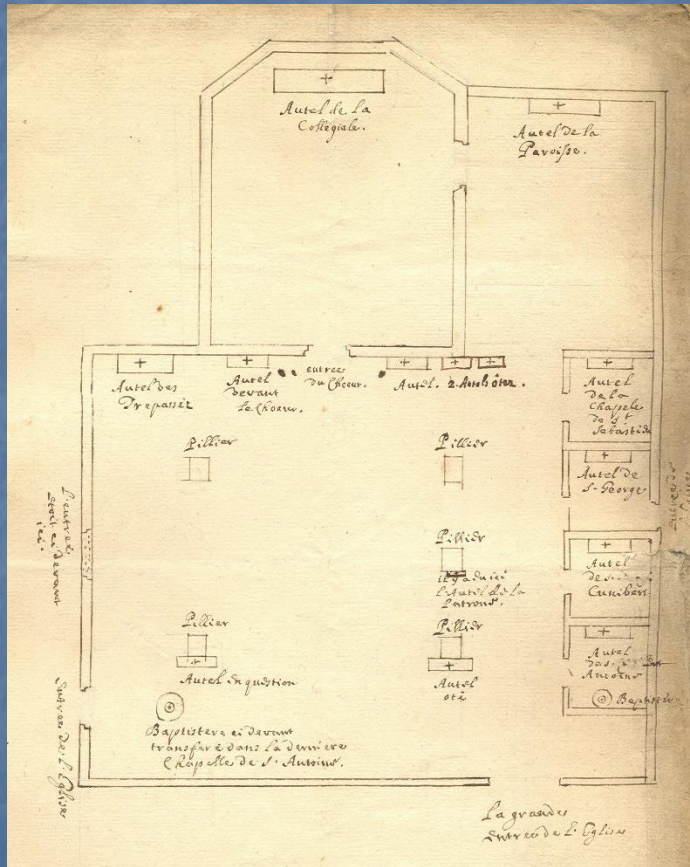 Autel de la
Collegiale.
Autel de la
Paroisse.
Autel des
Trepassez
Autel
devant
le Choeur.
entree
du Choeur.
Autel.
2. Autels ôtez.
Autel
de la
Chapele
de St
Sebastien
Autel de
St George
Pillier
Pillier
L'entree
etoit ci devant
ici.
Pillier
il y a eu ici
l'Autel de la
Patrone.
Autel
Cunibert
Pillier
Autel en question
Pillier
Autel
oté
Autel
Antoine
Baptistere
Baptistere ci devant
transferé dans la derniere
Chapelle de St Antoine.
Entree de L'Eglise
La grande
Entree de L'Eglise